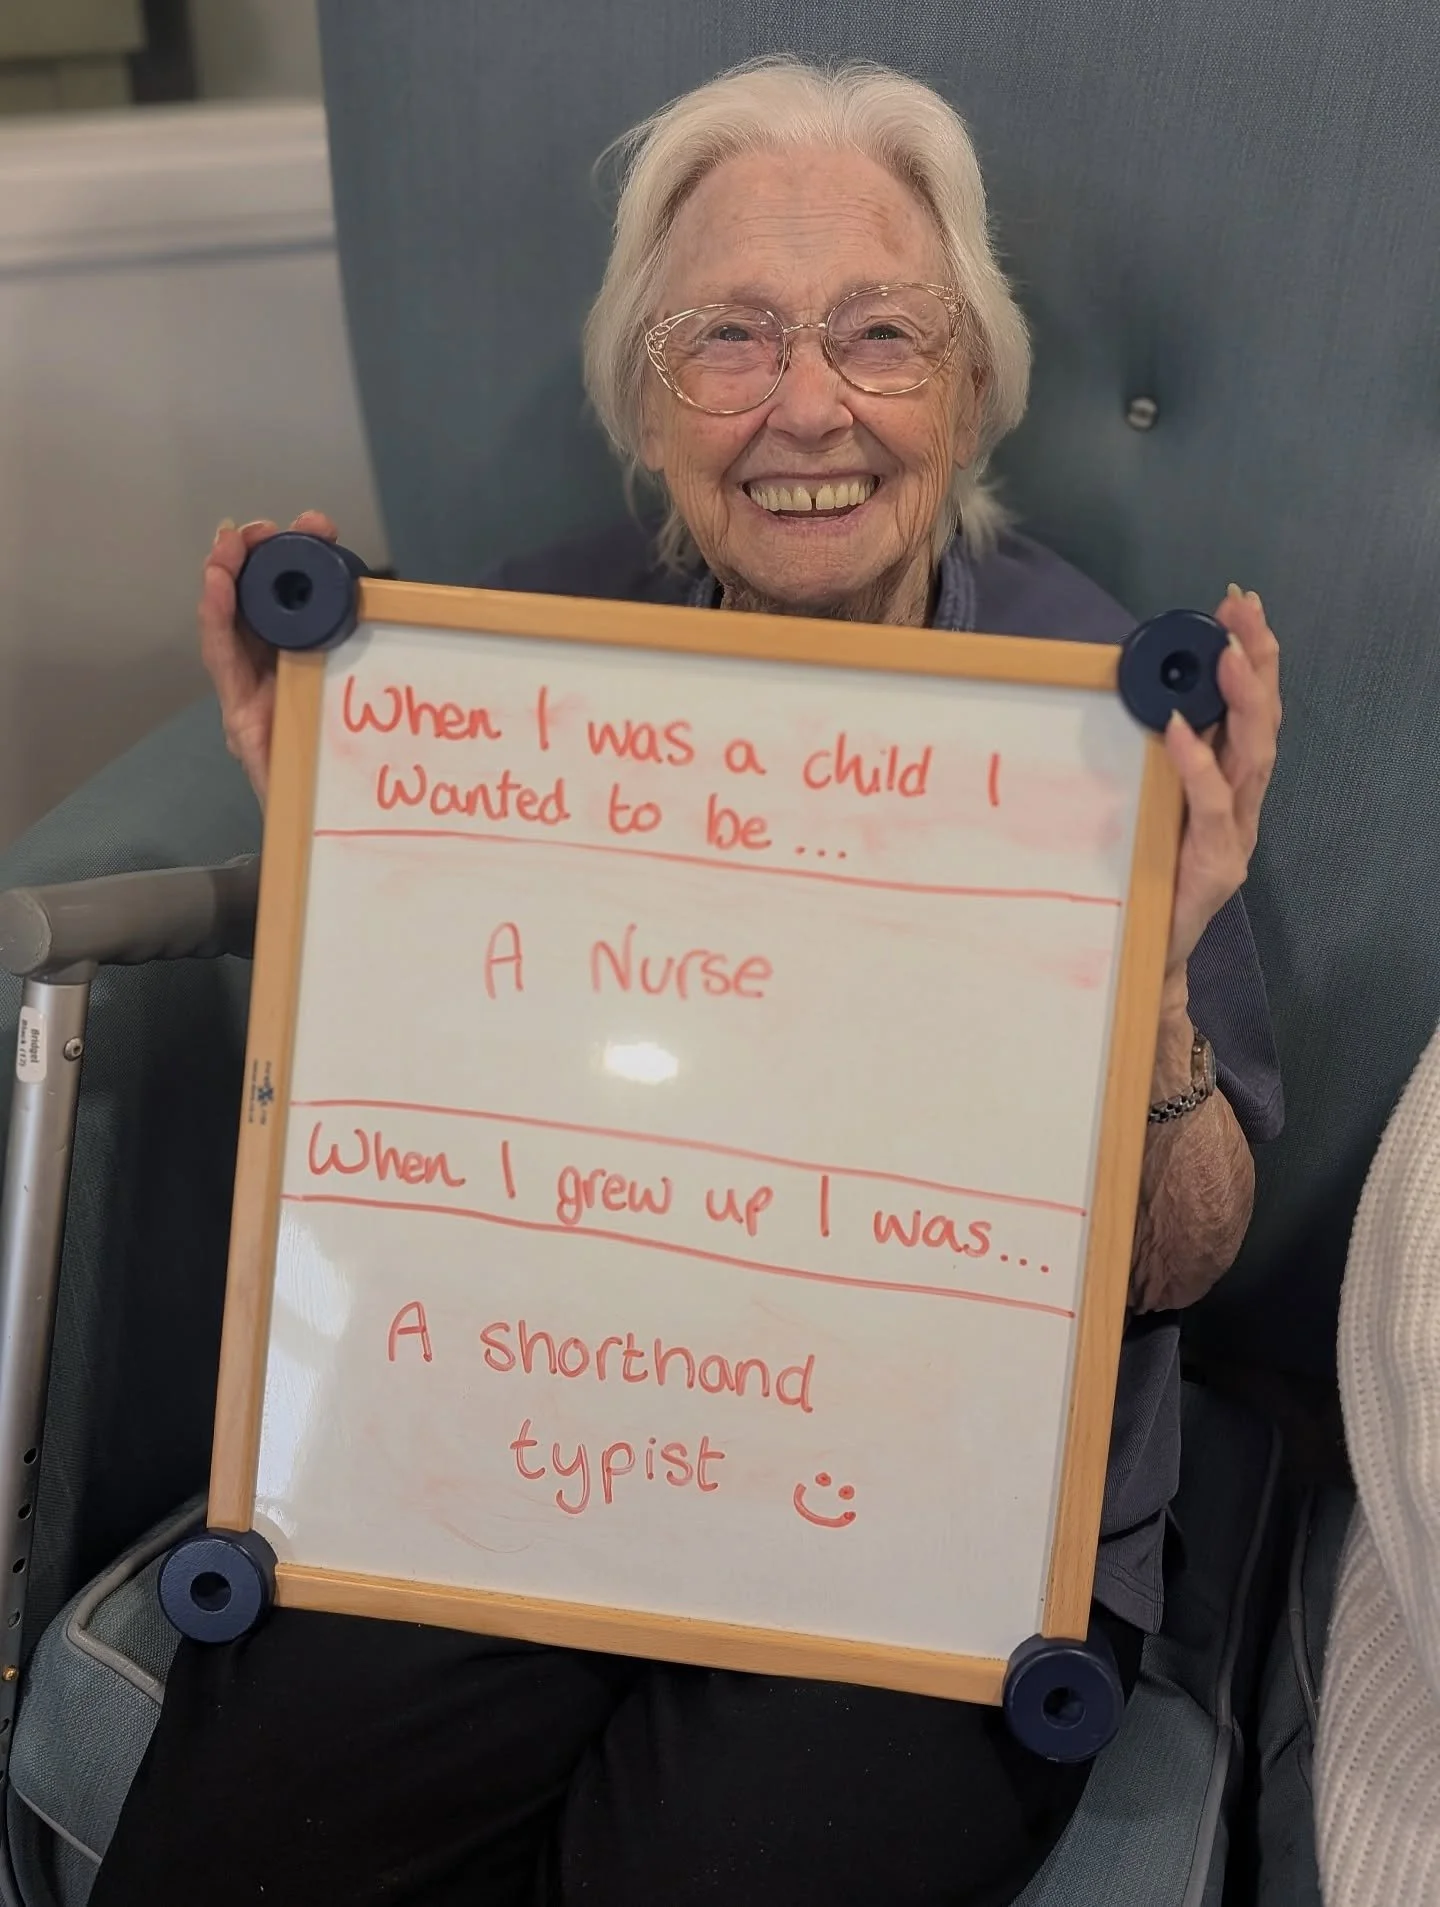 When I was a child I
Wanted to be...
A Nurse
When I grew up I was...
A shorthand
typist